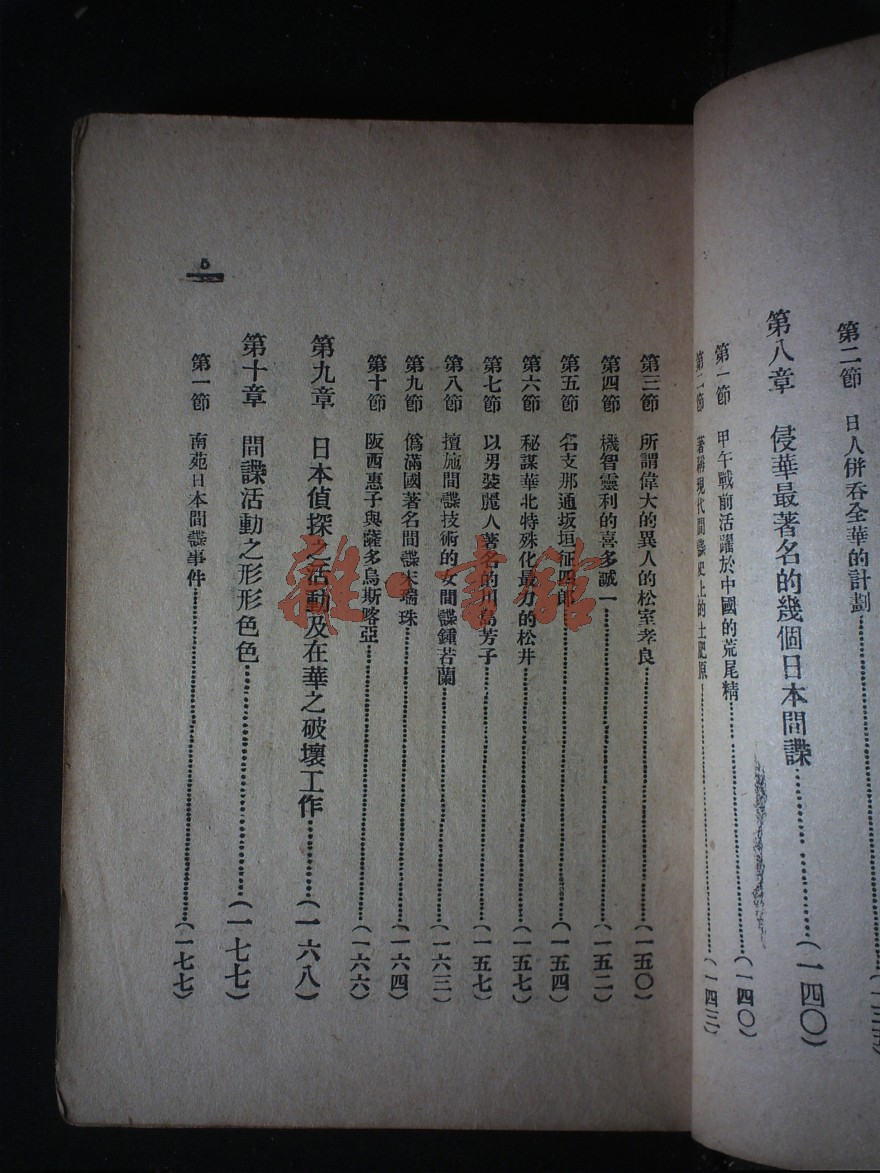 第二節 日人併吞全華的計劃
第八章 侵華最著名的幾個日本間諜…………(一四〇)
第一節 甲午戰前活躍於中國的荒尾精…………(一四〇)
第二節 著稱現代間諜史上的土肥原…………(一四三)
第三節 所謂偉大的異人的松室孝良…………(一五〇)
第四節 機智靈利的喜多誠一…………(一五二)
第五節 名支那通坂垣征四郎…………(一五四)
第六節 秘謀華北特殊化最力的松井…………(一五七)
第七節 以男裝麗人著名的川島芳子…………(一五七)
第八節 擅施間諜技術的女間諜鍾若蘭…………(一六三)
第九節 僞滿國著名間諜宋瑞珠…………(一六四)
第十節 阪西惠子與薩多烏斯喀亞…………(一六六)
第九章 日本偵探之活動及在華之破壞工作…………(一六八)
第十章 間諜活動之形形色色…………(一七七)
第一節 南苑日本間諜事件…………(一七七)
5
雜·書館